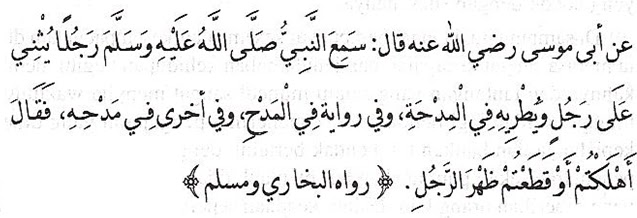 عن أبى موسى رضي الله عنه قال: سَمِعَ النَّبِيُّ صَلَّى اللَّهُ عَلَيْهِ وَسَلَّمَ رَجُلًا يُثْنِي
عَلَى رَجُلٍ وَيُطْرِيهِ فِي الْمِدْحَةِ، وفي رواية فِي الْمَدْحِ، وفي أخرى فِي مَدْحِهِ، فَقَالَ
أَهْلَكْتُمْ أَوْ قَطَعْتُمْ ظَهْرَ الرَّجُلِ. ﴿ رواه البخاري ومسلم ﴾